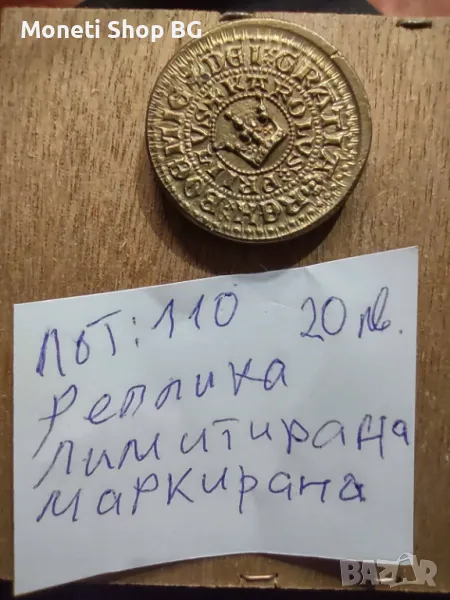 Moneti Shop BG
DEI: GRATIA
BOEMIE
KAROLUS
PRIMUS
Лот: 110 20 лв.
Реплика
лимитирана
маркирана
BAZAR